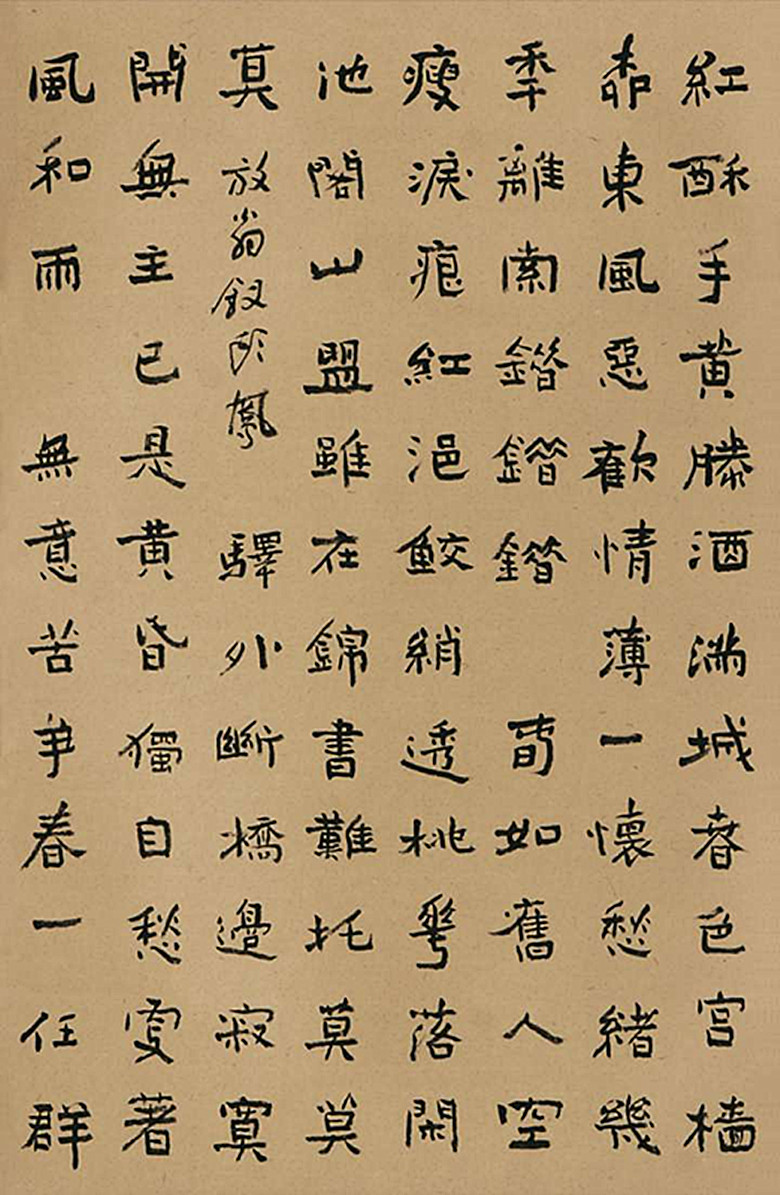 紅酥手黃滕酒滿城春色宮牆
柳東風惡歡情薄一懷愁緒幾
年離索錯錯錯 春如舊人空
瘦淚痕紅浥鮫綃透桃花落閑
池閣山盟雖在錦書難托莫莫
莫 放翁釵頭鳳 驛外斷橋邊寂寞
開無主已是黃昏獨自愁更著
風和雨 無意苦爭春一任群